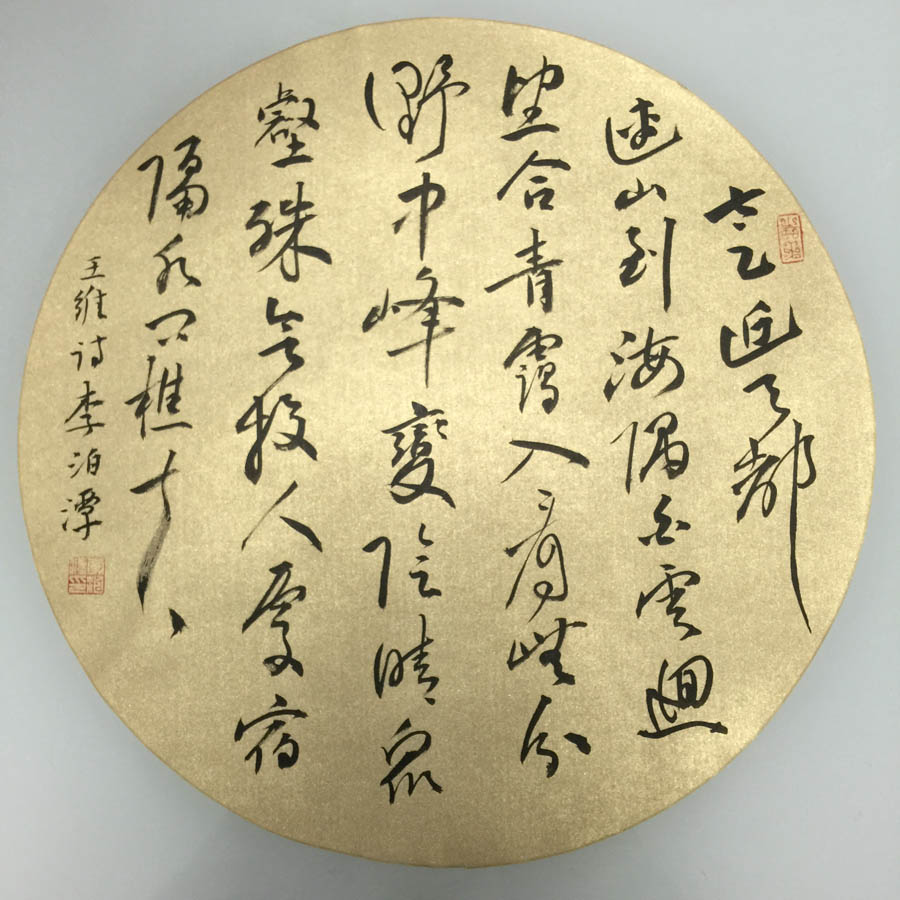 太乙近天都
連山到海隅白雲迴
望合青靄入看無分
野中峰變陰晴衆
壑殊欲投人處宿
隔水问樵夫
王維诗李泊潭